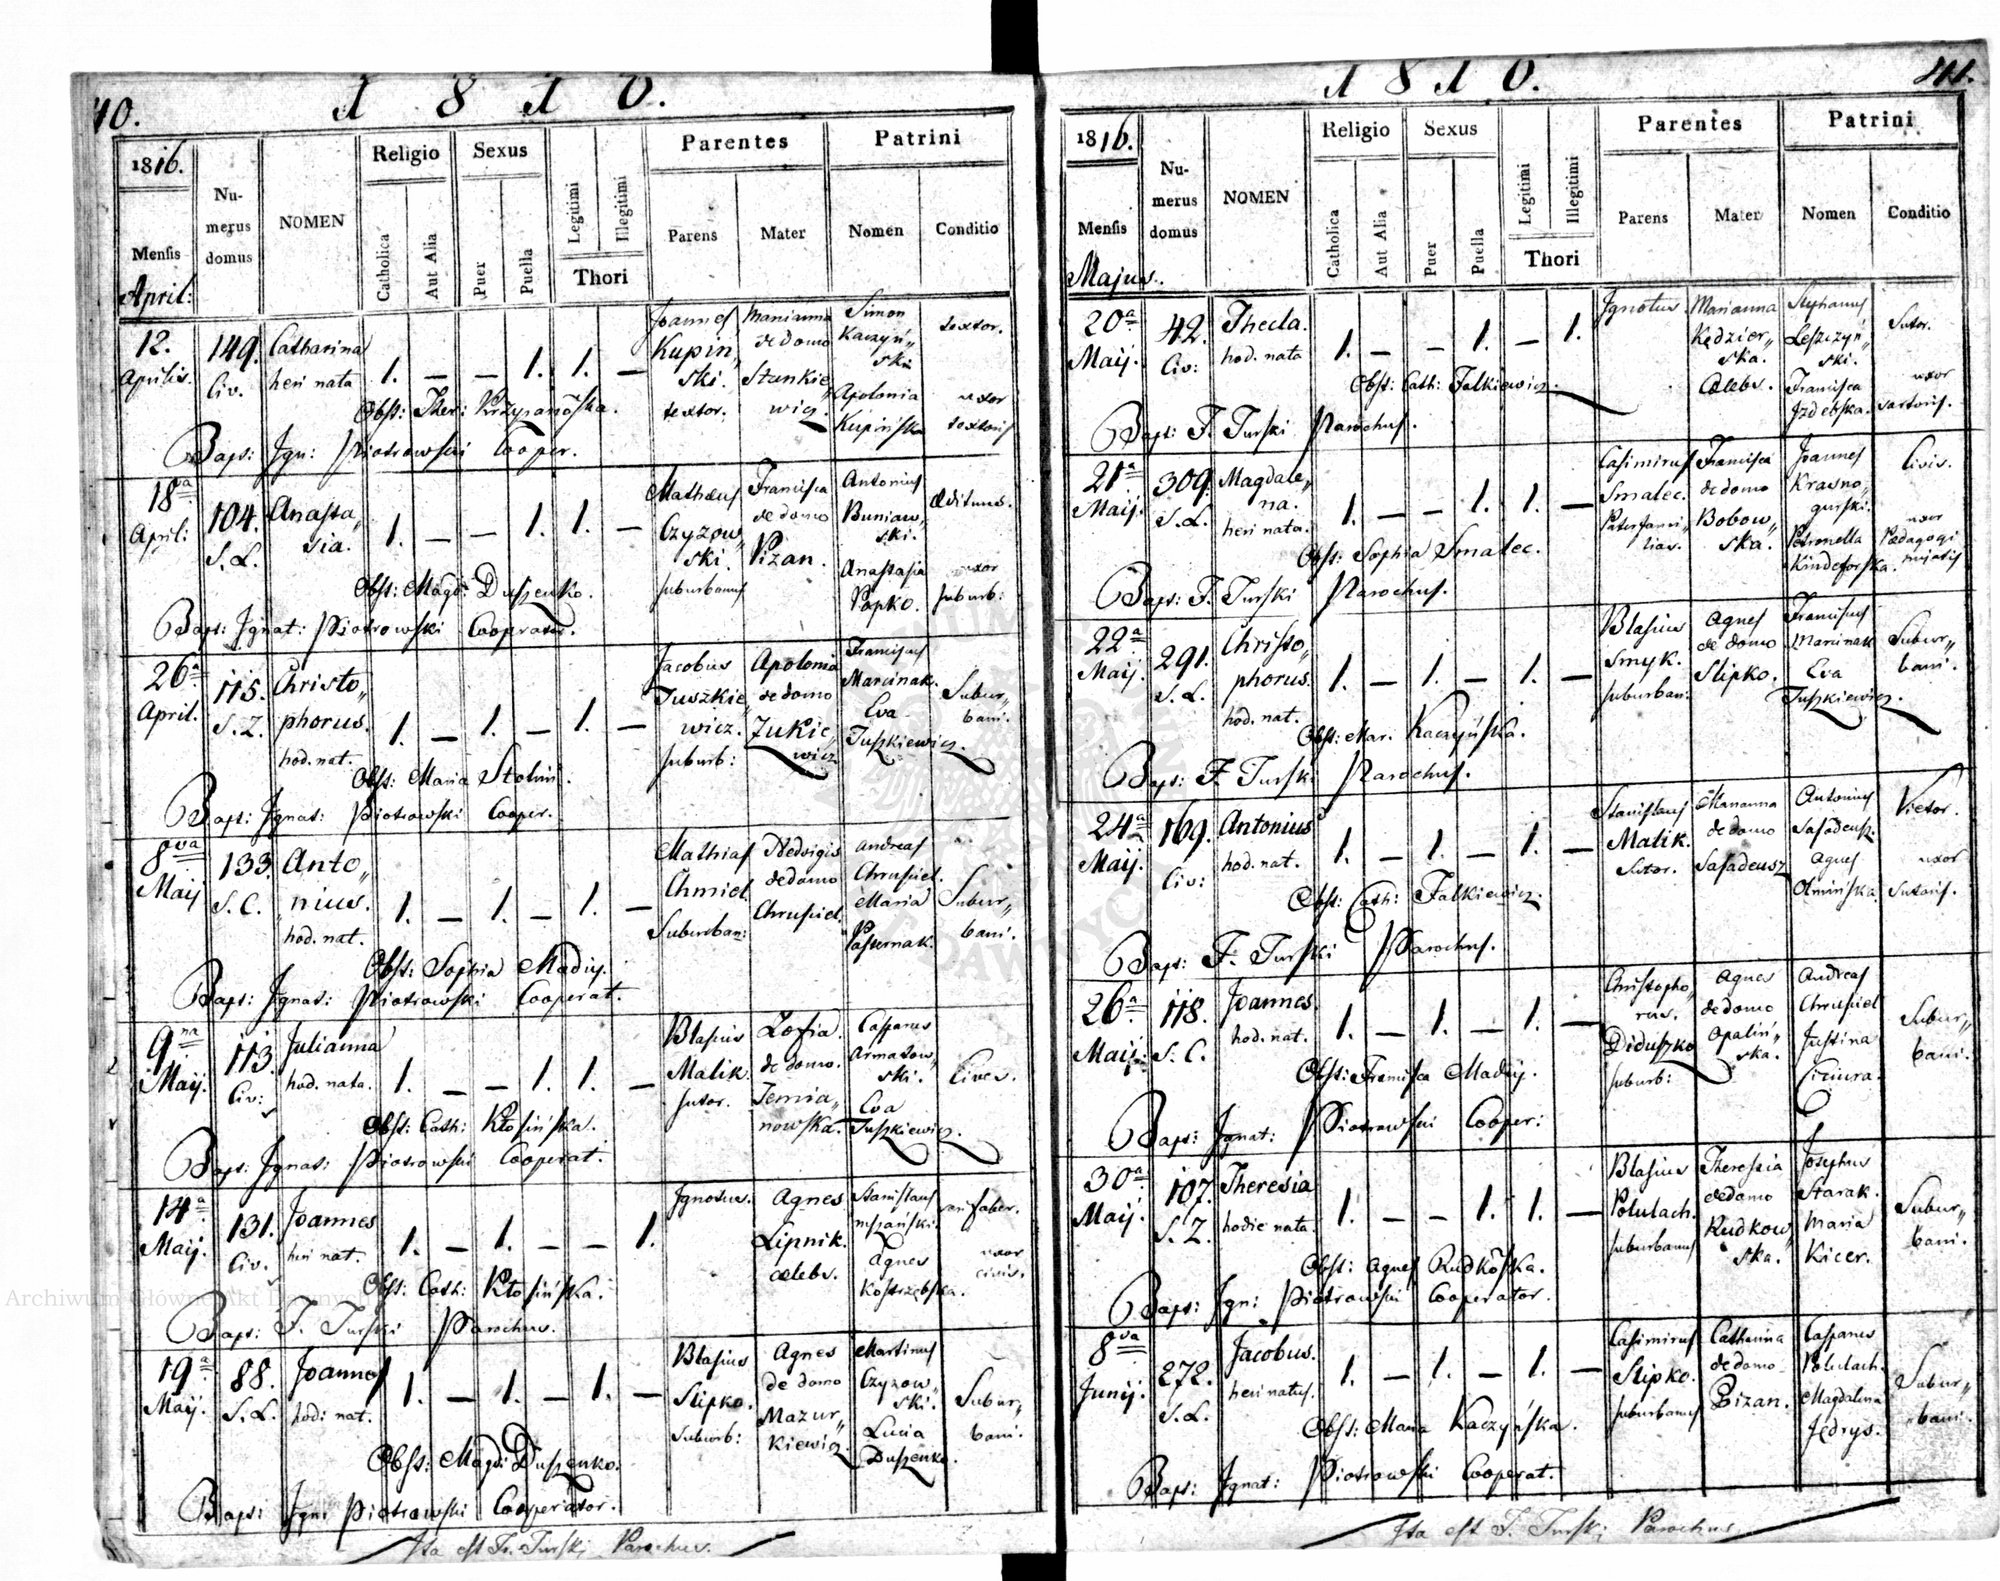 40.
1816.
1816.
Mensis
April:
Numerus domus
NOMEN
Religio
Catholica
Aut Alia
Sexus
Puer
Puella
Legitimi
Illegitimi
Thori
Parentes
Parens
Mater
Patrini
Nomen
Conditio
12. Aprilis.
149. Civ.
Catharina heri nata
1. — — 1. 1. —
Joannes Kupiń„ski. textor.
Marianna de domo Stankie„wicz.
Simon Kaczyń„ski
Apolonia Kupińska
textor.
uxor textoris
Obst: Ther: Krzyżanoska.
Bapt: Ign: Piotrowski Cooper.
18va April:
104. S. L.
Anasta„sia.
1. — — 1. 1. —
Mathaeus Czyzow„ski. suburbanus
Francisca de domo Pizan.
Antonius Buniaw„ski.
Anastasia Popko.
Aedituus.
uxor suburb:
Obst: Magd: Duszenko.
Bapt: Ignat: Piotrowski Cooprator.
26a April.
115. S. Z.
Christo„phorus. hod. nat.
1. — 1. — 1. —
Jacobus Tuszkie„wicz. suburb:
Apolonia de domo Zukie„wicz
Franciscus Marcinak.
Eva Tuszkiewicz.
Subur„bani.
Obst: Maria Stolni.
Bapt: Ignat: Piotrowski Cooper.
8va Maij
133. S. C.
Anto„nius. hod. nat.
1. — 1. — 1. —
Mathias Chmiel. Suburban:
Hedvigis de domo Chrusciel.
Andreas Chrusciel.
Maria Pasternak.
Subur„bani.
Obst: Sophia Madij.
Bapt: Ignat: Piotrowski Cooperat.
9na Maij.
113. Civ:
Julianna hod. nata.
1. — — 1. 1. —
Blasius Malik. sutor.
Zofia de domo. Temia„nowska.
Casparus Armatow„ski.
Eva Tuszkiewicz.
Cives.
Obst: Cath: Kłosińska.
Bapt: Ignat: Piotrowski Cooperat.
14a Maij.
131. Civ.
Joannes heri nat.
1. — 1. — — 1.
Ignotus.
Agnes Lipnik. caelebs.
Stanislaus
Agnes Kostrzębska.
uxor civis.
Obst: Cath: Kłosińska.
Bapt: F. Turski Parochus.
19a Maij.
88. S. L.
Joannes hodi nat.
1. — 1. — 1. —
Blasius Slipko. suburb:
Agnes de domo Mazur„kiewicz.
Martinus Czyzow„ski.
Lucia Duszenko.
Subur„bani.
Obst: Magd: Duszenko.
Bapt: Ign: Piotrowski Cooperator.
Ita est Fr. Turski Parochus.
1816.
41.
1816.
Mensis
Majus.
Numerus domus
NOMEN
Religio
Catholica
Aut Alia
Sexus
Puer
Puella
Legitimi
Illegitimi
Thori
Parentes
Parens
Mater
Patrini
Nomen
Conditio
20a Maij.
42. Civ:
Thecla. hod. nata
1. — — 1. — 1.
Ignotus
Marianna Kędzier„ska. Caelebs.
Stephanus Leszczyń„ski.
Francisca Izdebska.
Sutor.
uxor sartoris.
Obst: Cath: Falkiewicz.
Bapt: F. Turski Parochus.
21a Maij.
309. S. L.
Magdale„na. heri nata.
1. — — 1. 1. —
Casimirus Smalec. Pater fami„lias.
Francisca de domo Bobow„ska.
Joannes Krasno„gurski.
Petronella Kindeforska.
Civis.
uxor Paedagogi
Obst: Sophia Smalec.
Bapt: F. Turski Parochus.
22a Maij.
291. S. L.
Christo„phorus. hod. nat.
1. — 1. — 1. —
Blasius Smyk. suburban:
Agnes de domo Slipko.
Franciscus Marcinak
Eva Tuszkiewicz.
Subur„bani.
Obst: Mar. Kaczyńska.
Bapt: F. Turski Parochus.
24a Maij.
169. Civ:
Antonius hod. nat.
1. — 1. — 1. —
Stanislaus Malik. Sutor.
Marianna de domo Safadeusz
Antonius Safadeusz.
Agnes Otmińska.
Vietor.
uxor Sutoris.
Obst: Cath: Falkiewicz.
Bapt: F. Turski Parochus.
26a Maij:
118. S. C.
Joannes. hod. nat.
1. — 1. — 1. —
Christopho„rus. Diduszko suburb:
Agnes de domo Opaliń„ska.
Andreas Chrusciel
Justina Ciciura.
Subur„bani.
Obst: Francisca Madij.
Bapt: Ignat: Piotrowski Cooper:
30a Maij.
107. S. Z.
Theresia hodie nata.
1. — — 1. 1. —
Blasius Polulach. suburbanus
Theressia de domo Rudkow„ska.
Josephus Starak.
Maria Kicer.
Subur„bani.
Obst: Agnes Rudkoska.
Bapt: Ign: Piotrowski Cooperator.
8va Junij.
272. S. L.
Jacobus. heri natus.
1. — 1. — 1. —
Casimirus Slipko. suburbanus
Catharina de domo Pizan.
Casparus Polulach.
Magdalena Jędrys.
Subur„bani.
Obst: Maria Kaczyńska.
Bapt: Ignat: Piotrowski Cooperat.
Ita est F. Turski Parochus
Archiwum Główne Akt Dawnych